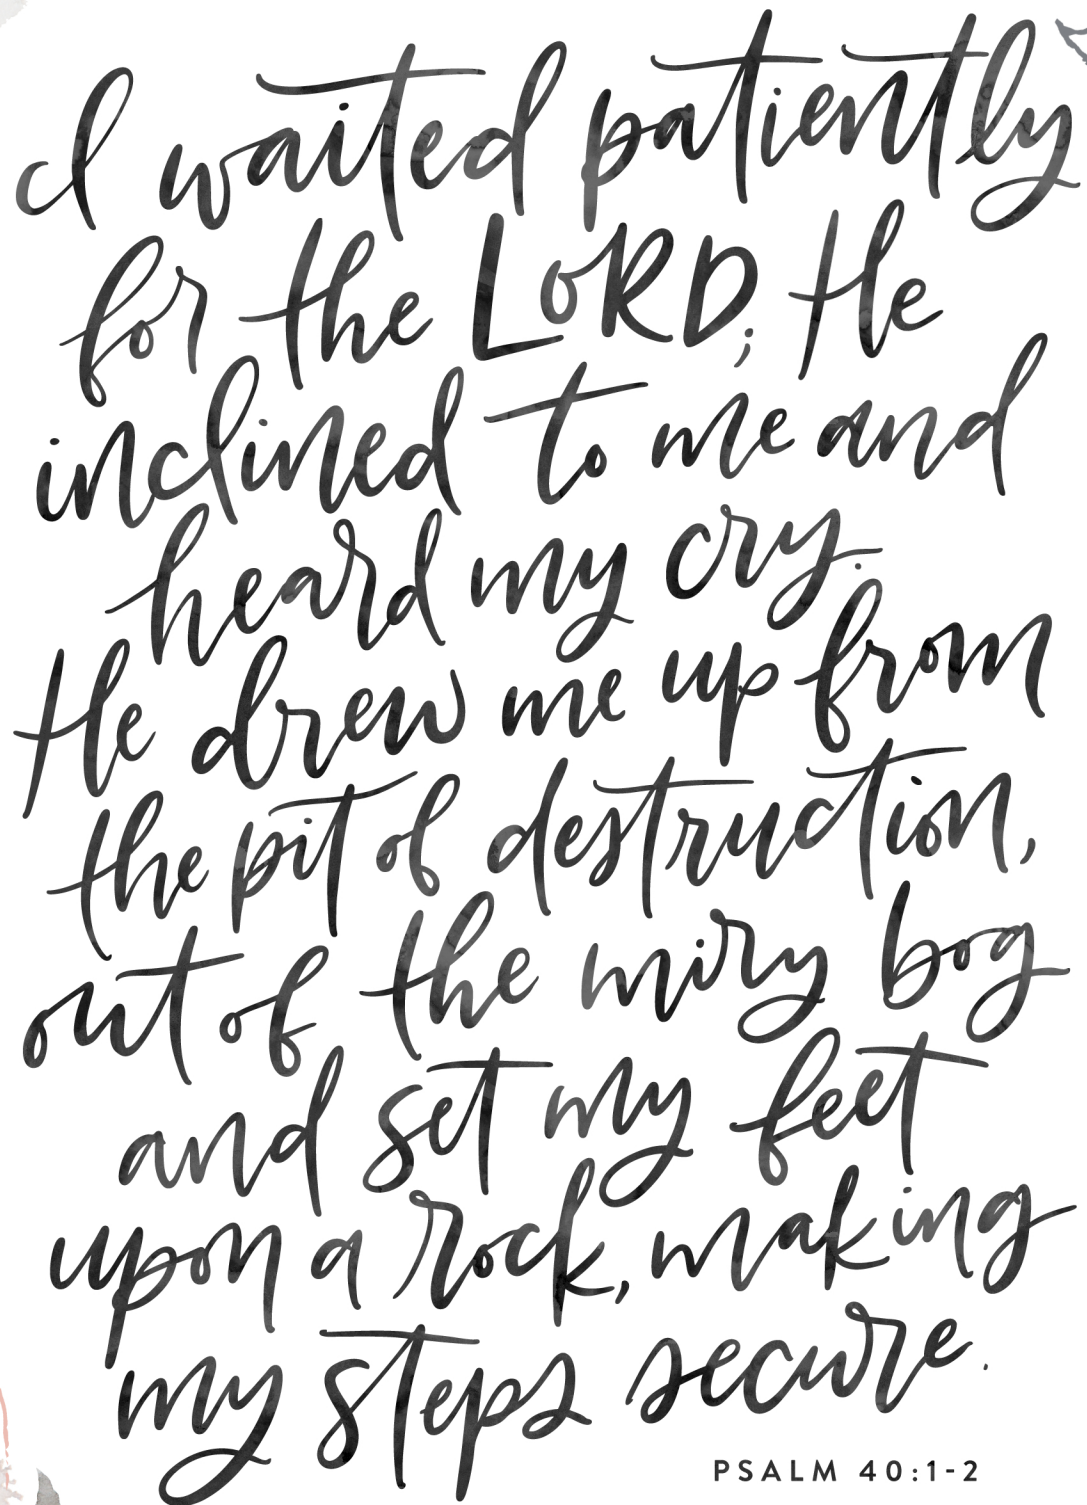 I waited patiently
for the LORD; He
inclined to me and
heard my cry.
He drew me up from
the pit of destruction,
out of the miry bog
and set my feet
upon a rock, making
my steps secure.
PSALM 40:1-2